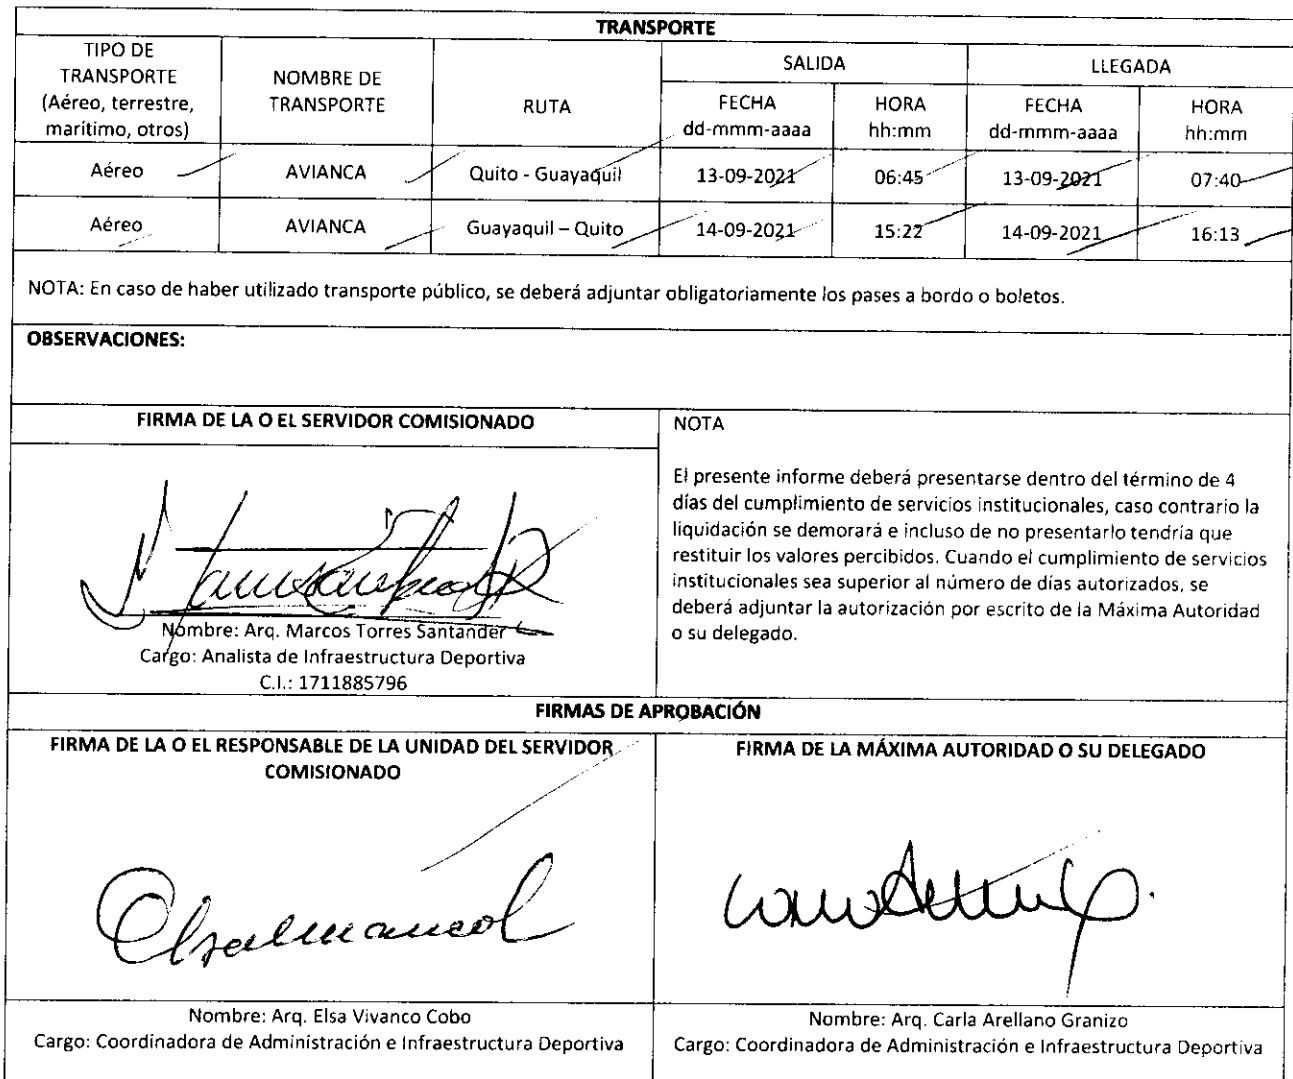 TRANSPORTE
TIPO DE
TRANSPORTE
(Aéreo, terrestre,
marítimo, otros)
NOMBRE DE
TRANSPORTE
RUTA
SALIDA
LLEGADA
FECHA
dd-mmm-aaaa
HORA
hh:mm
FECHA
dd-mmm-aaaa
HORA
hh:mm
Aéreo AVIANCA Quito - Guayaquil 13-09-2021 06:45 13-09-2021 07:40
Aéreo AVIANCA Guayaquil – Quito 14-09-2021 15:22 14-09-2021 16:13
NOTA: En caso de haber utilizado transporte público, se deberá adjuntar obligatoriamente los pases a bordo o boletos.
OBSERVACIONES:
FIRMA DE LA O EL SERVIDOR COMISIONADO
Nombre: Arq. Marcos Torres Santander
Cargo: Analista de Infraestructura Deportiva
C.I.: 1711885796
NOTA
El presente informe deberá presentarse dentro del término de 4
días del cumplimiento de servicios institucionales, caso contrario la
liquidación se demorará e incluso de no presentarlo tendría que
restituir los valores percibidos. Cuando el cumplimiento de servicios
institucionales sea superior al número de días autorizados, se
deberá adjuntar la autorización por escrito de la Máxima Autoridad
o su delegado.
FIRMAS DE APROBACIÓN
FIRMA DE LA O EL RESPONSABLE DE LA UNIDAD DEL SERVIDOR
COMISIONADO
Nombre: Arq. Elsa Vivanco Cobo
Cargo: Coordinadora de Administración e Infraestructura Deportiva
FIRMA DE LA MÁXIMA AUTORIDAD O SU DELEGADO
Nombre: Arq. Carla Arellano Granizo
Cargo: Coordinadora de Administración e Infraestructura Deportiva